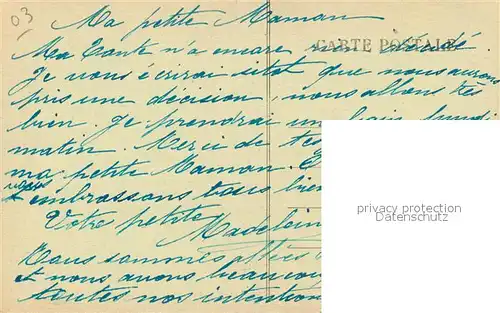 03
Ma petite Maman
CARTE POSTALE
Ma Tante n'a encore rien décidé.
Je vous écrirai sitot que nous aurons
pris une décision, nous allons très
bien je prendrai un bain lundi
matin. Merci de tes
ma petite Maman.
vous
embrassons tous bien
Votre petite
Madelein
Nous sommes allées
et nous avons beaucou
toutes nos intention
privacy protection
Datenschutz